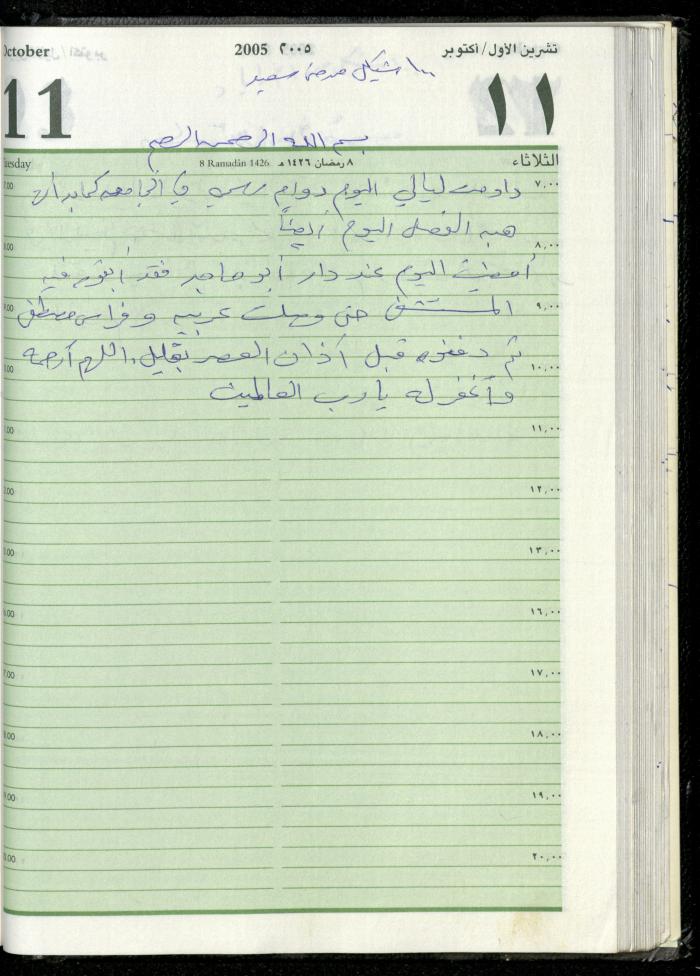 October 2005 ٢٠٠٥ تشرين الأول/أكتوبر
١٠٠ شيكل من سعيد
11 ١١
بسم الله الرحمن الرحيم
Tuesday 8 Ramadân 1426 ٨ رمضان ١٤٢٦ هـ الثلاثاء
٧,٠٠ داومت ليالي اليوم دوام رسمي في الجامعة كما بدأت
هبه الفصل اليوم أيضاً
٨,٠٠
أمضيت اليوم عند دار أبو ماجد فقد أبقوه فيه
٩,٠٠ المستشفى حتى وصلت عربيه وفراس مصطفى
ثم دفنوه قبل أذان العصر بقليل، اللهم أرحمه
١٠,٠٠
وأغفر له يا رب العالمين
١١,٠٠
١٢,٠٠
١٣,٠٠
١٦,٠٠
١٧,٠٠
١٨,٠٠
١٩,٠٠
٢٠,٠٠